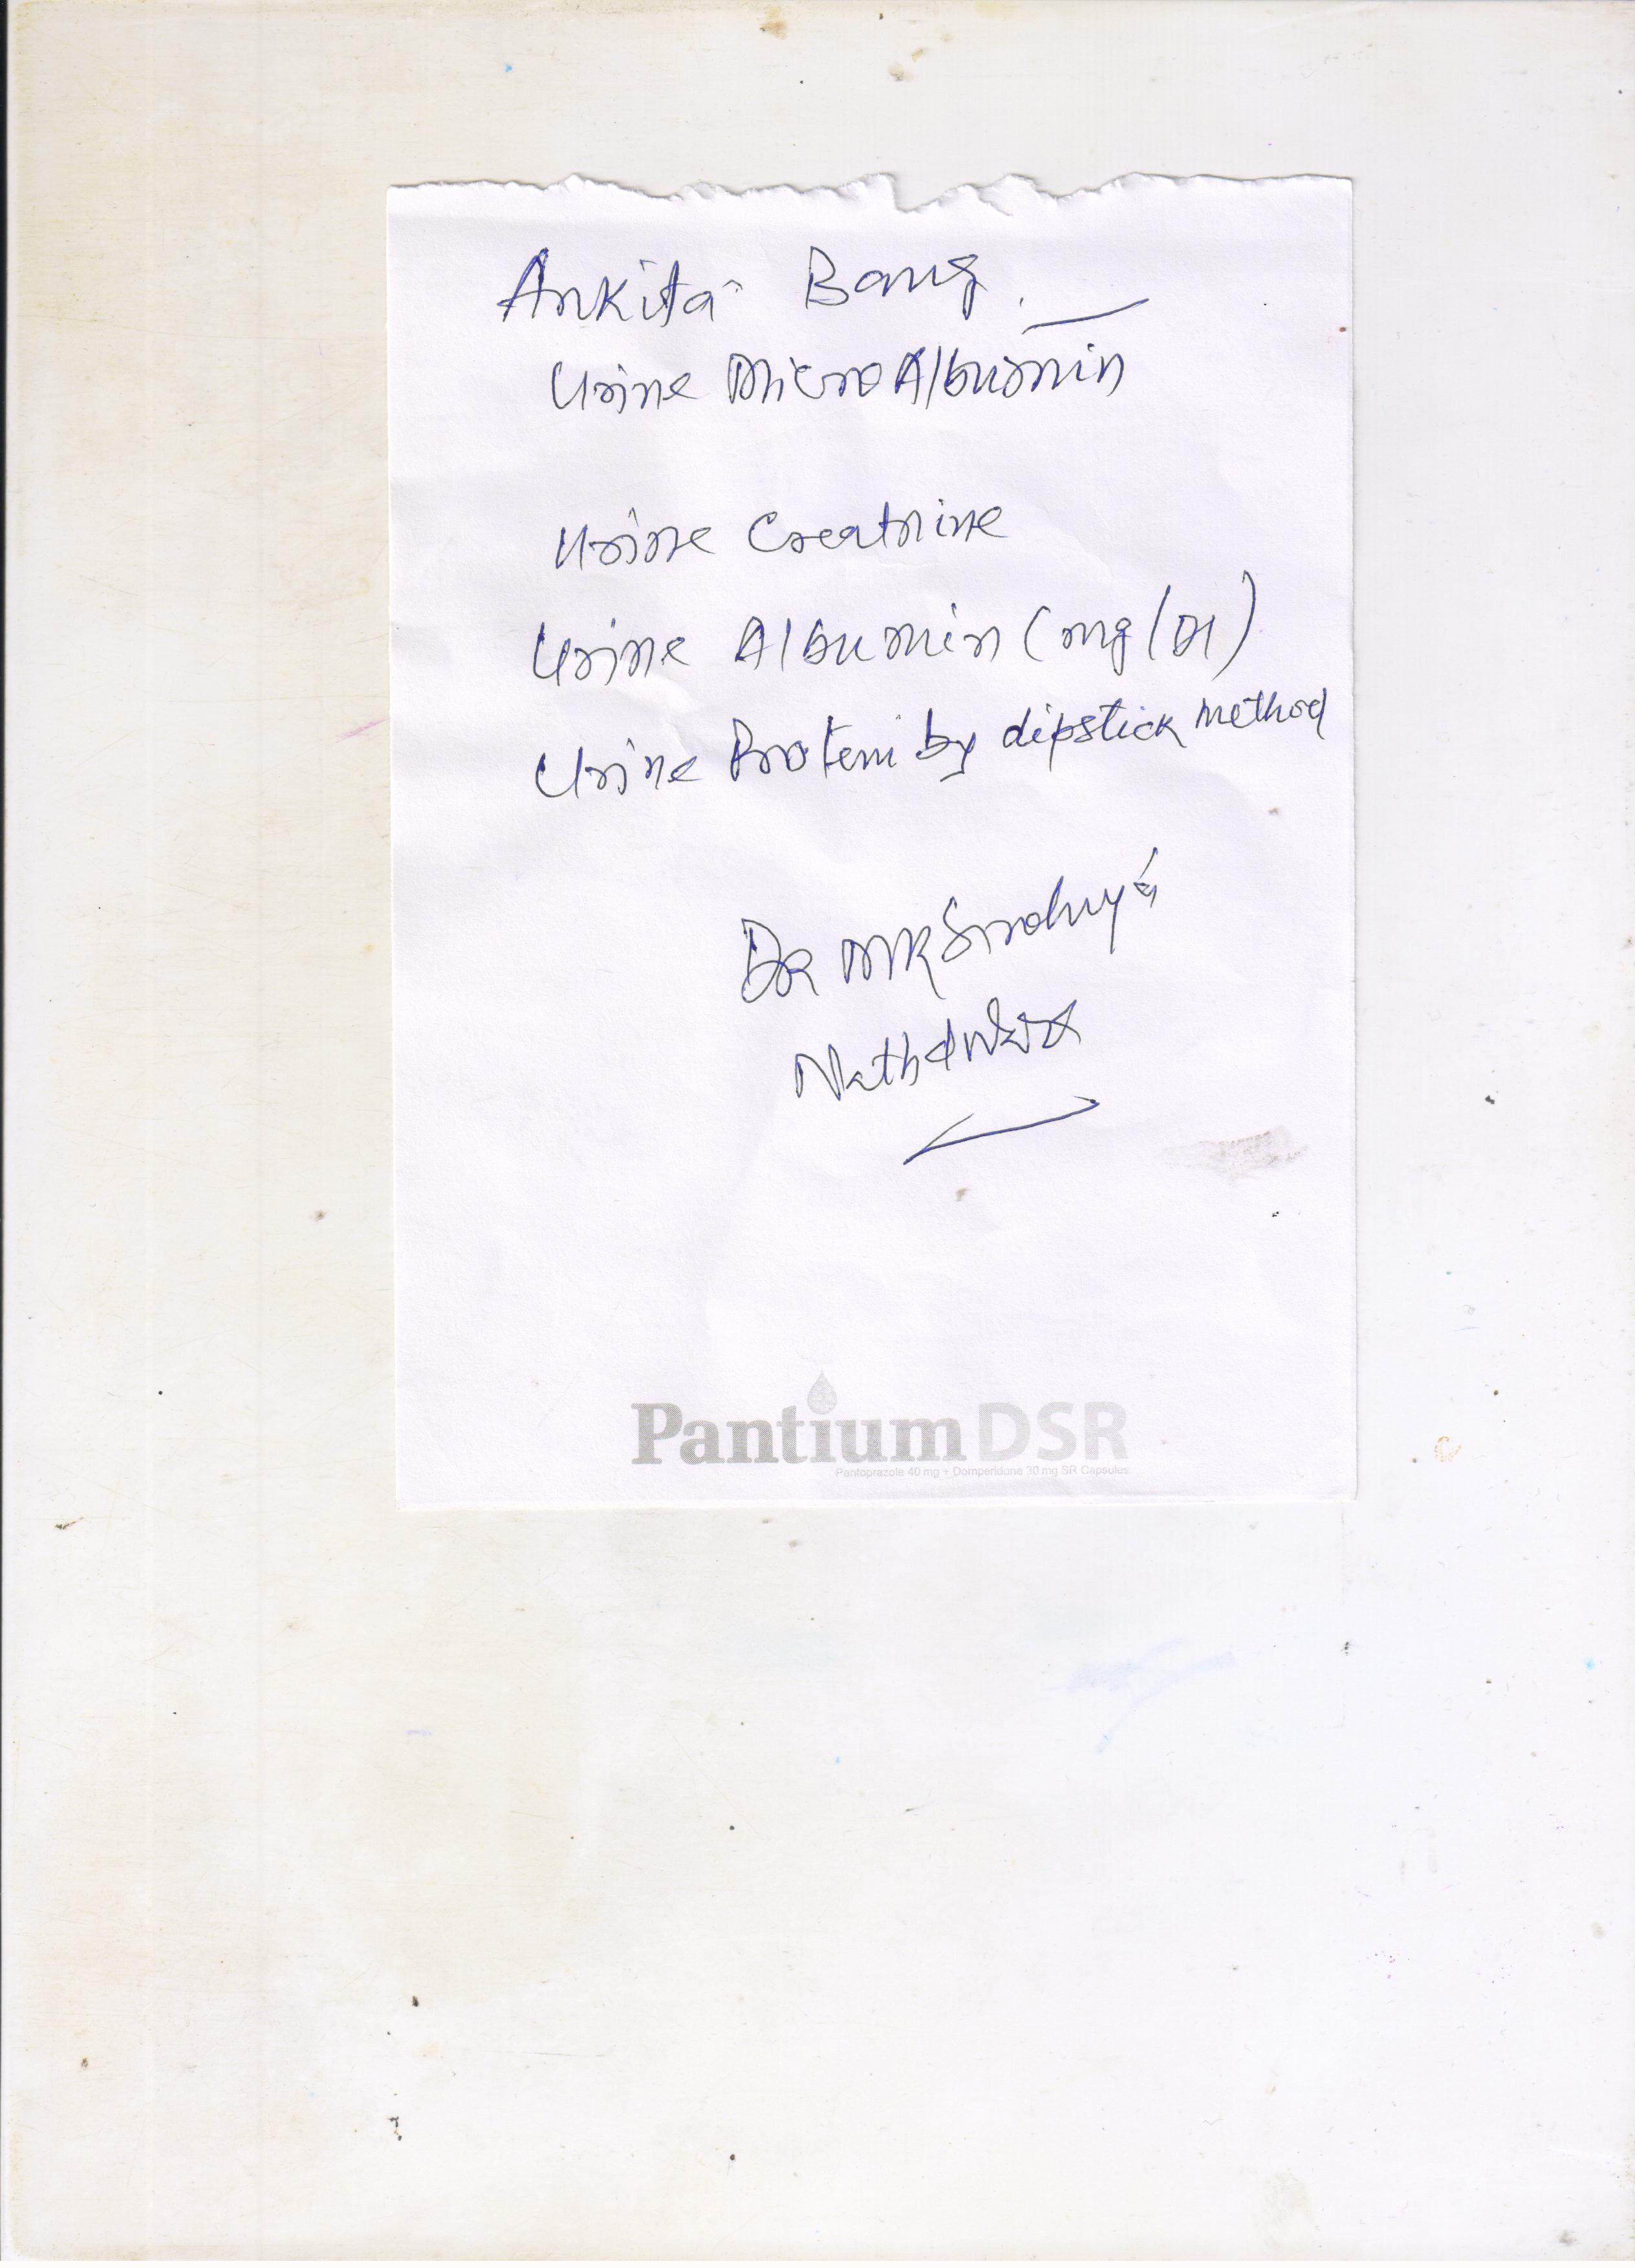 Ankita Bang
Urine MicroAlbumin
Urine Creatnine
Urine Albumin (mg/Dl)
Urine Protein by dipstick method
DR MK Sirohiya
Nathdwara
Pantium DSR
Pantoprazole 40 mg + Domperidone 30 mg SR Capsules